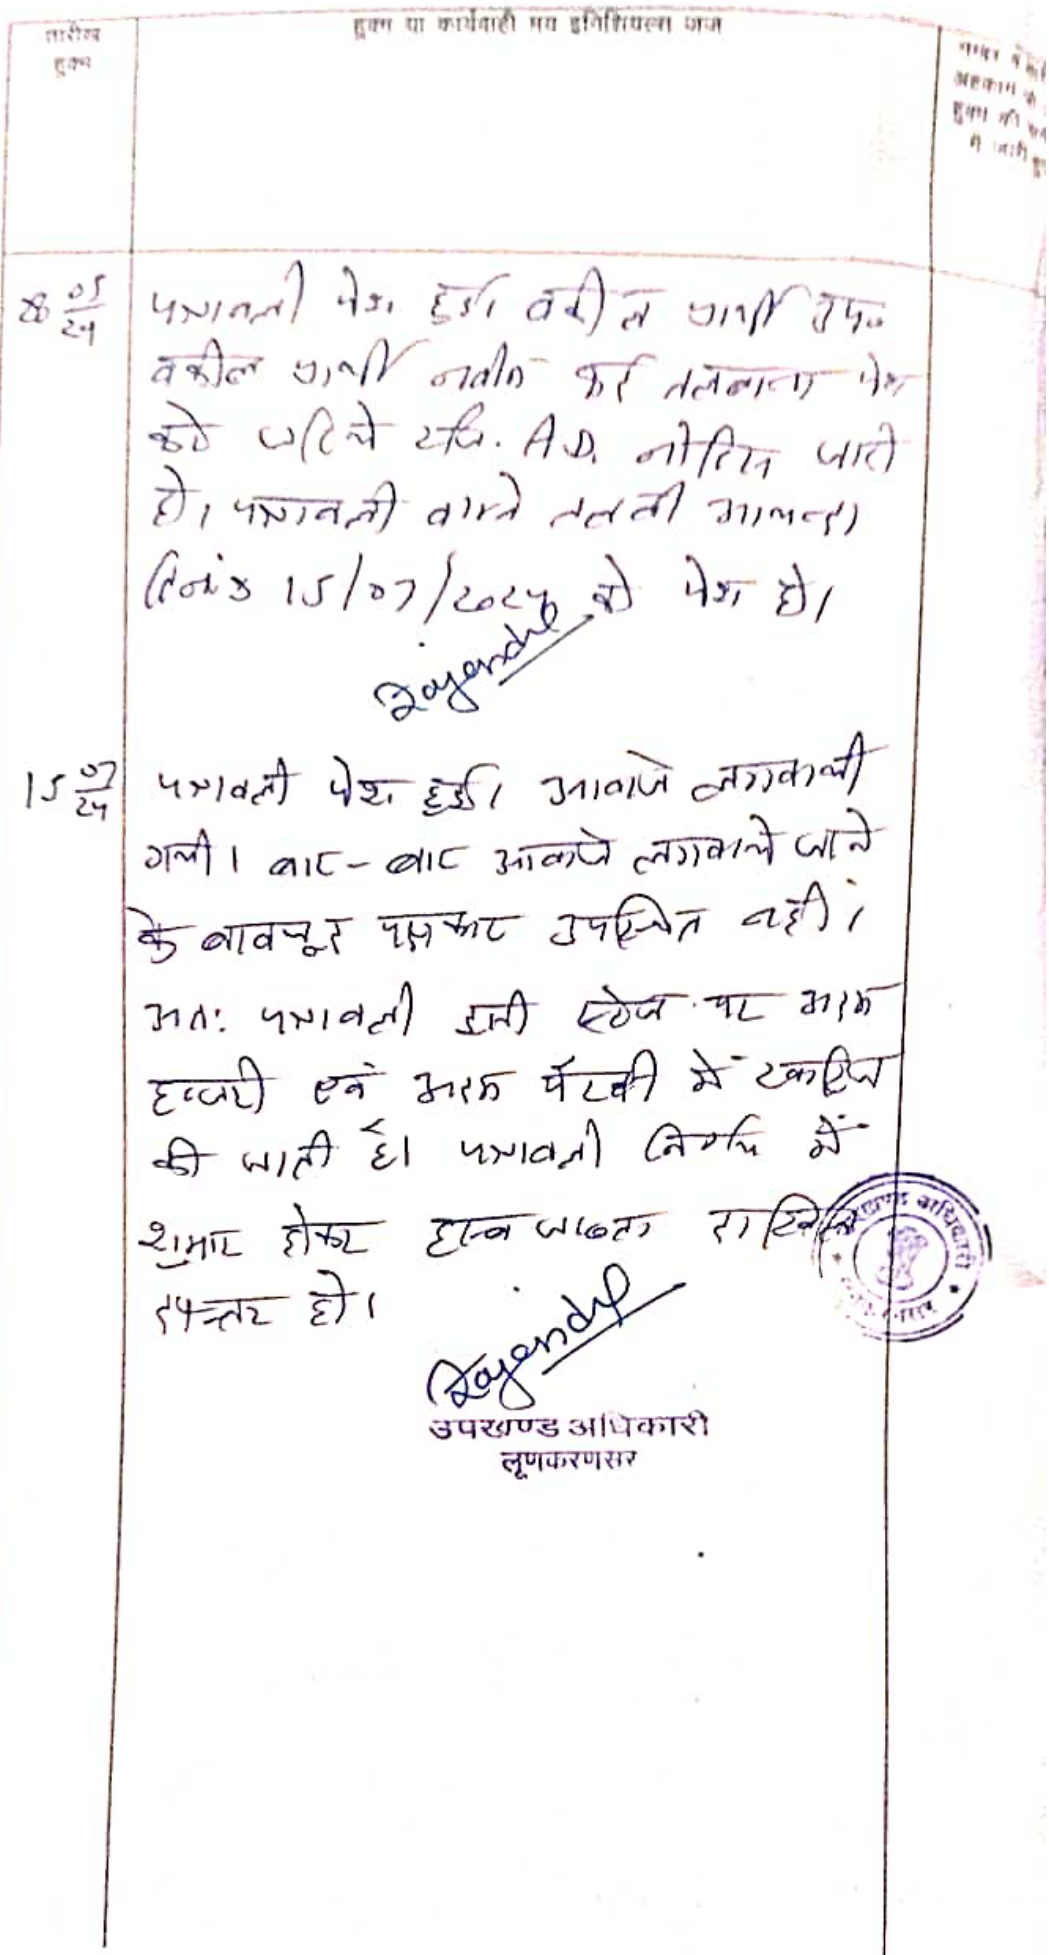 तारीख
हुक्म
हुक्म या कार्यवाही मय इनिशियल्स जज
नम्बर व
अहकाम
हुक्म की
में जारी
28 05/24
पत्रावली पेश हुई। वकील प्रार्थी उप०
वकील प्रार्थी नवीन तलबाना पेश
करे जरिये रजि. A.D. नोटिस जारी
हो। पत्रावली वास्ते तलबी आमन्दा
दिनांक 15/07/2024 को पेश हो।
Rajendra
15 07/24
पत्रावली पेश हुई। आवाजे लगवायी
गयी। बार-बार आवाजे लगवाये जाने
के बावजूद पक्षकार उपस्थित नहीं।
अतः पत्रावली इसी स्टेज पर अदम
हाजरी एवं अदम पैरवी में खारिज
की जाती है। पत्रावली निर्णय में
शुमार होकर हस्ब जाब्ता दाखिल
दफ्तर हो।
खण्ड अधिकारी
Rajendra
उपखण्ड अधिकारी
लूणकरणसर